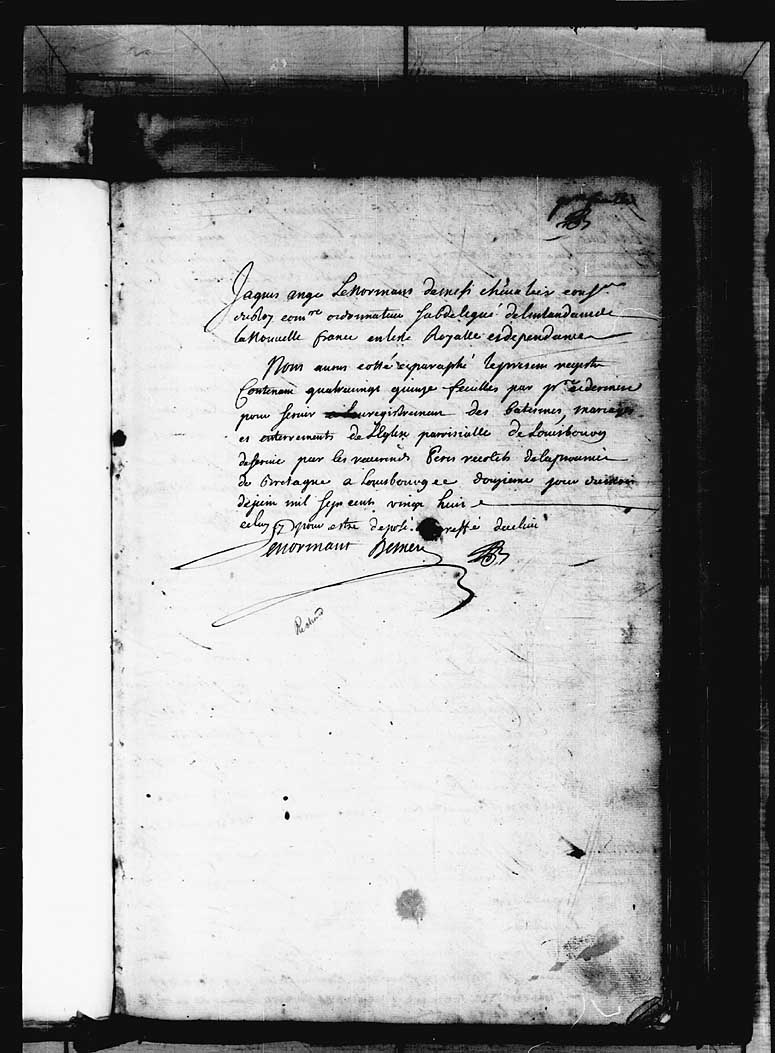 pre feuille
Jaques ange Le Normant demesi chevalier conser
du Roy comre ordonnateur subdelegué de l'intendance de
la Nouvelle france en lisle Royalle et dependances
Nous avons cotté et paraphé le present registre
Contenant quatrevingt quinze feuilles par pre et derniere
pour servir a l'enregistrement des batesmes, mariages
et enterrements de L'Eglise parroisialle de Louisbourg
deservie par les reverends Peres recolets de la province
de Bretagne a Louisbourg ce douzieme jour du mois
de juin mil sept cent vingt huit
et luy pour estre deposé greffe
Lenormant